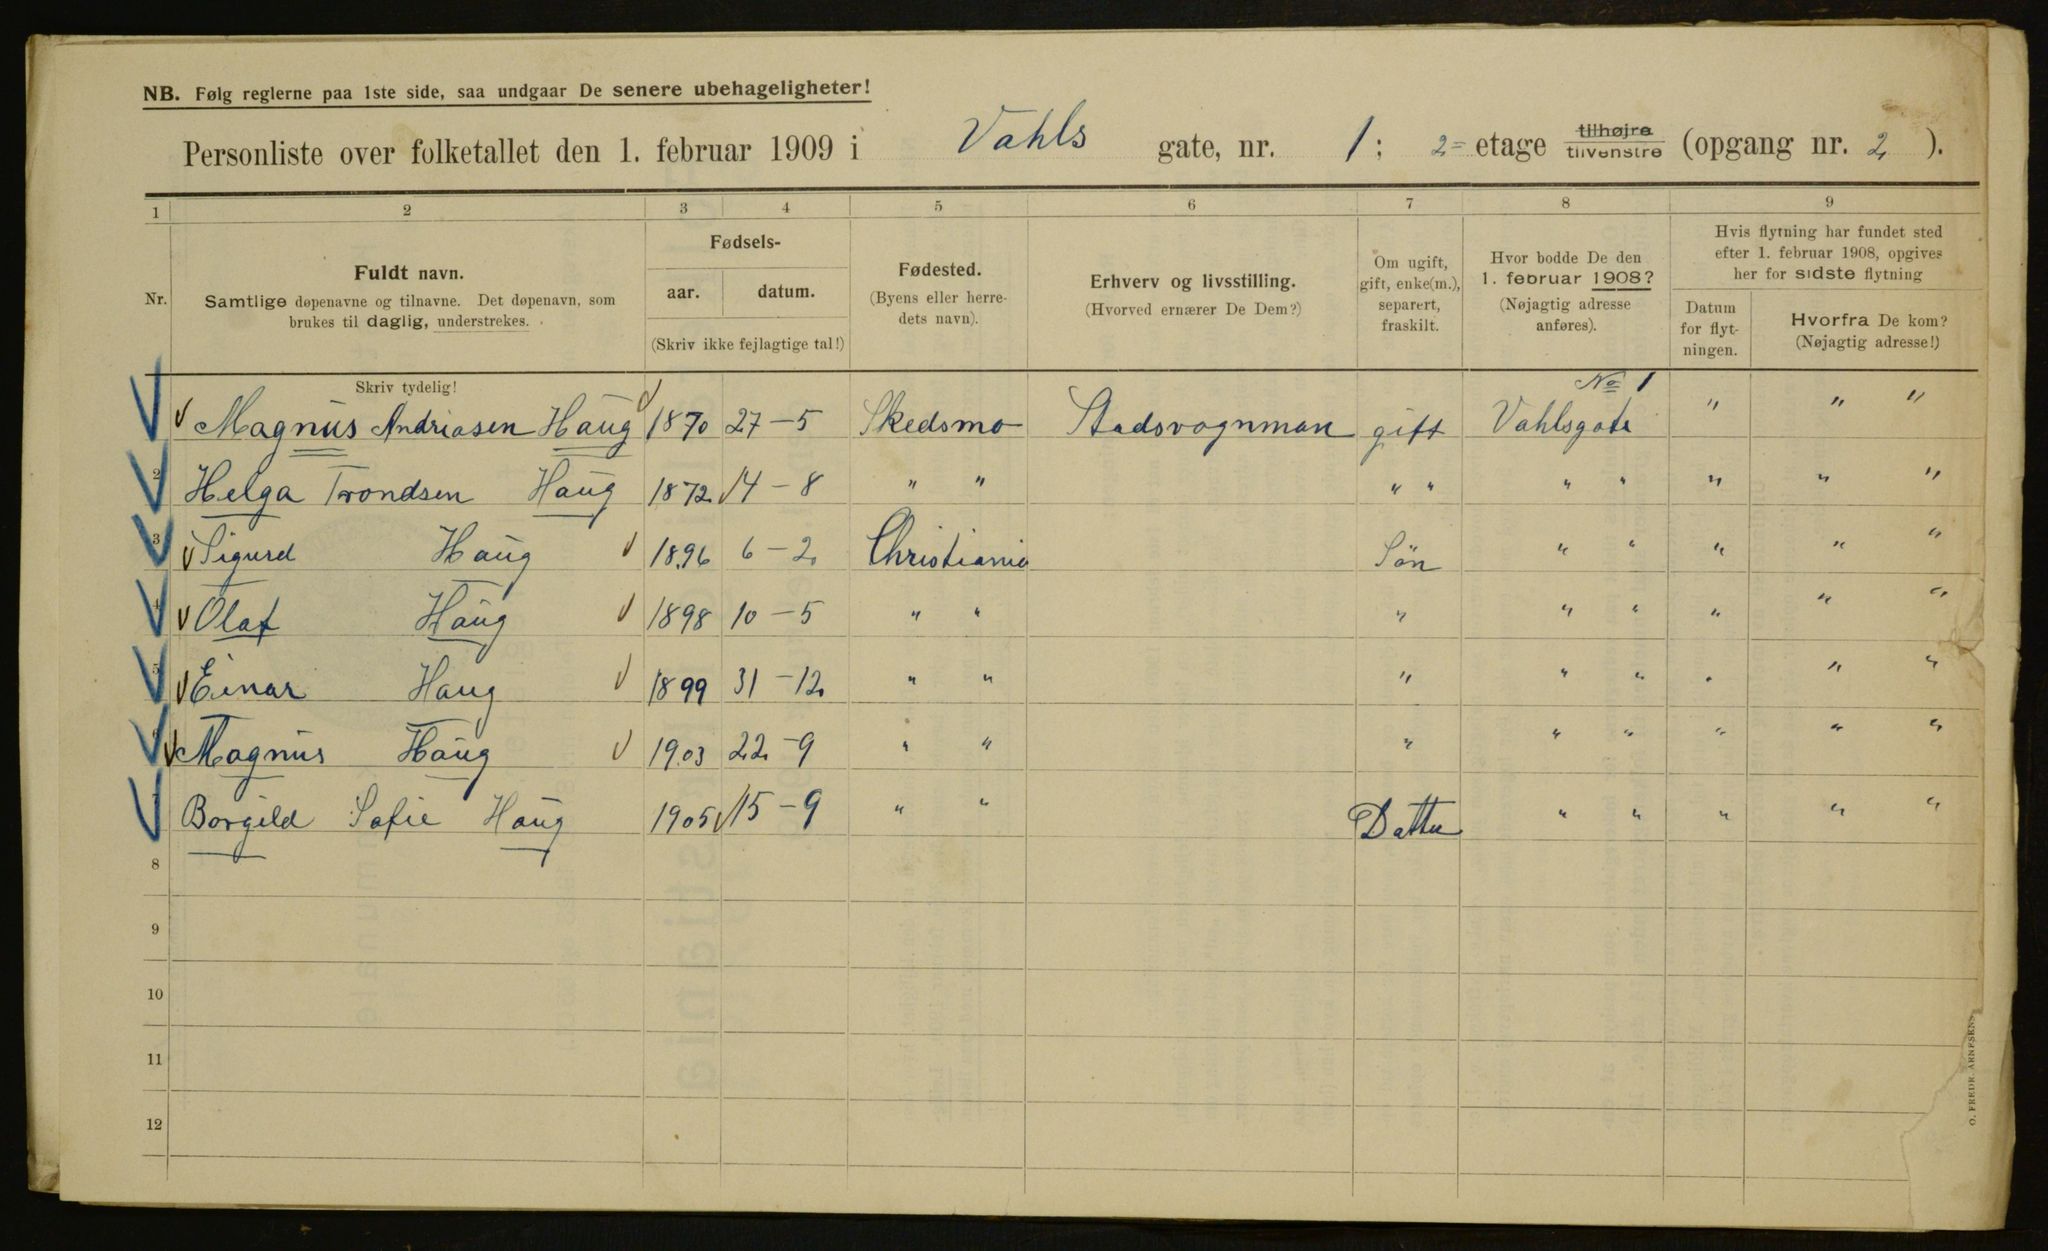 NB. Følg reglerne paa 1ste side, saa undgaar De senere ubehageligheter!
Personliste over folketallet den 1. februar 1909 i Vahls gate, nr. 1; 2= etage tilhøjre tilvenstre (opgang nr. 2).
1 2 3 4 5 6 7 8 9
Nr.
Fuldt navn.
Samtlige døpenavne og tilnavne. Det døpenavn, som
brukes til daglig, understrekes.
Skriv tydelig!
Fødsels-
aar. datum.
(Skriv ikke fejlagtige tal!)
Fødested.
(Byens eller herre-
dets navn).
Erhverv og livsstilling.
(Hvorved ernærer De Dem?)
Om ugift,
gift, enke(m.),
separert,
fraskilt.
Hvor bodde De den
1. februar 1908?
(Nøjagtig adresse
anføres).
Hvis flytning har fundet sted
efter 1. februar 1908, opgives
her for sidste flytning
Datum
for flyt-
ningen.
Hvorfra De kom?
(Nøjagtig adresse!)
No 1
Magnus Andriasen Haug 1870 27-5 Skedsmo Stadsvognman gift Vahlsgate " " "
2 Helga Trondsen Haug 1872 14-8 " " " " " " " " "
3 Sigurd Haug 1896 6-2 Christiania Sön " " " " "
4 Olaf Haug 1898 10-5 " " " " " " " "
5 Einar Haug 1899 31-12 " " " " " " " "
6 Magnus Haug 1903 22-9 " " " " " " " "
7 Borgild Sofie Haug 1905 15-9 " " Datter " " " " "
8
9
10
11
12
O. FREDR. ARNESENS